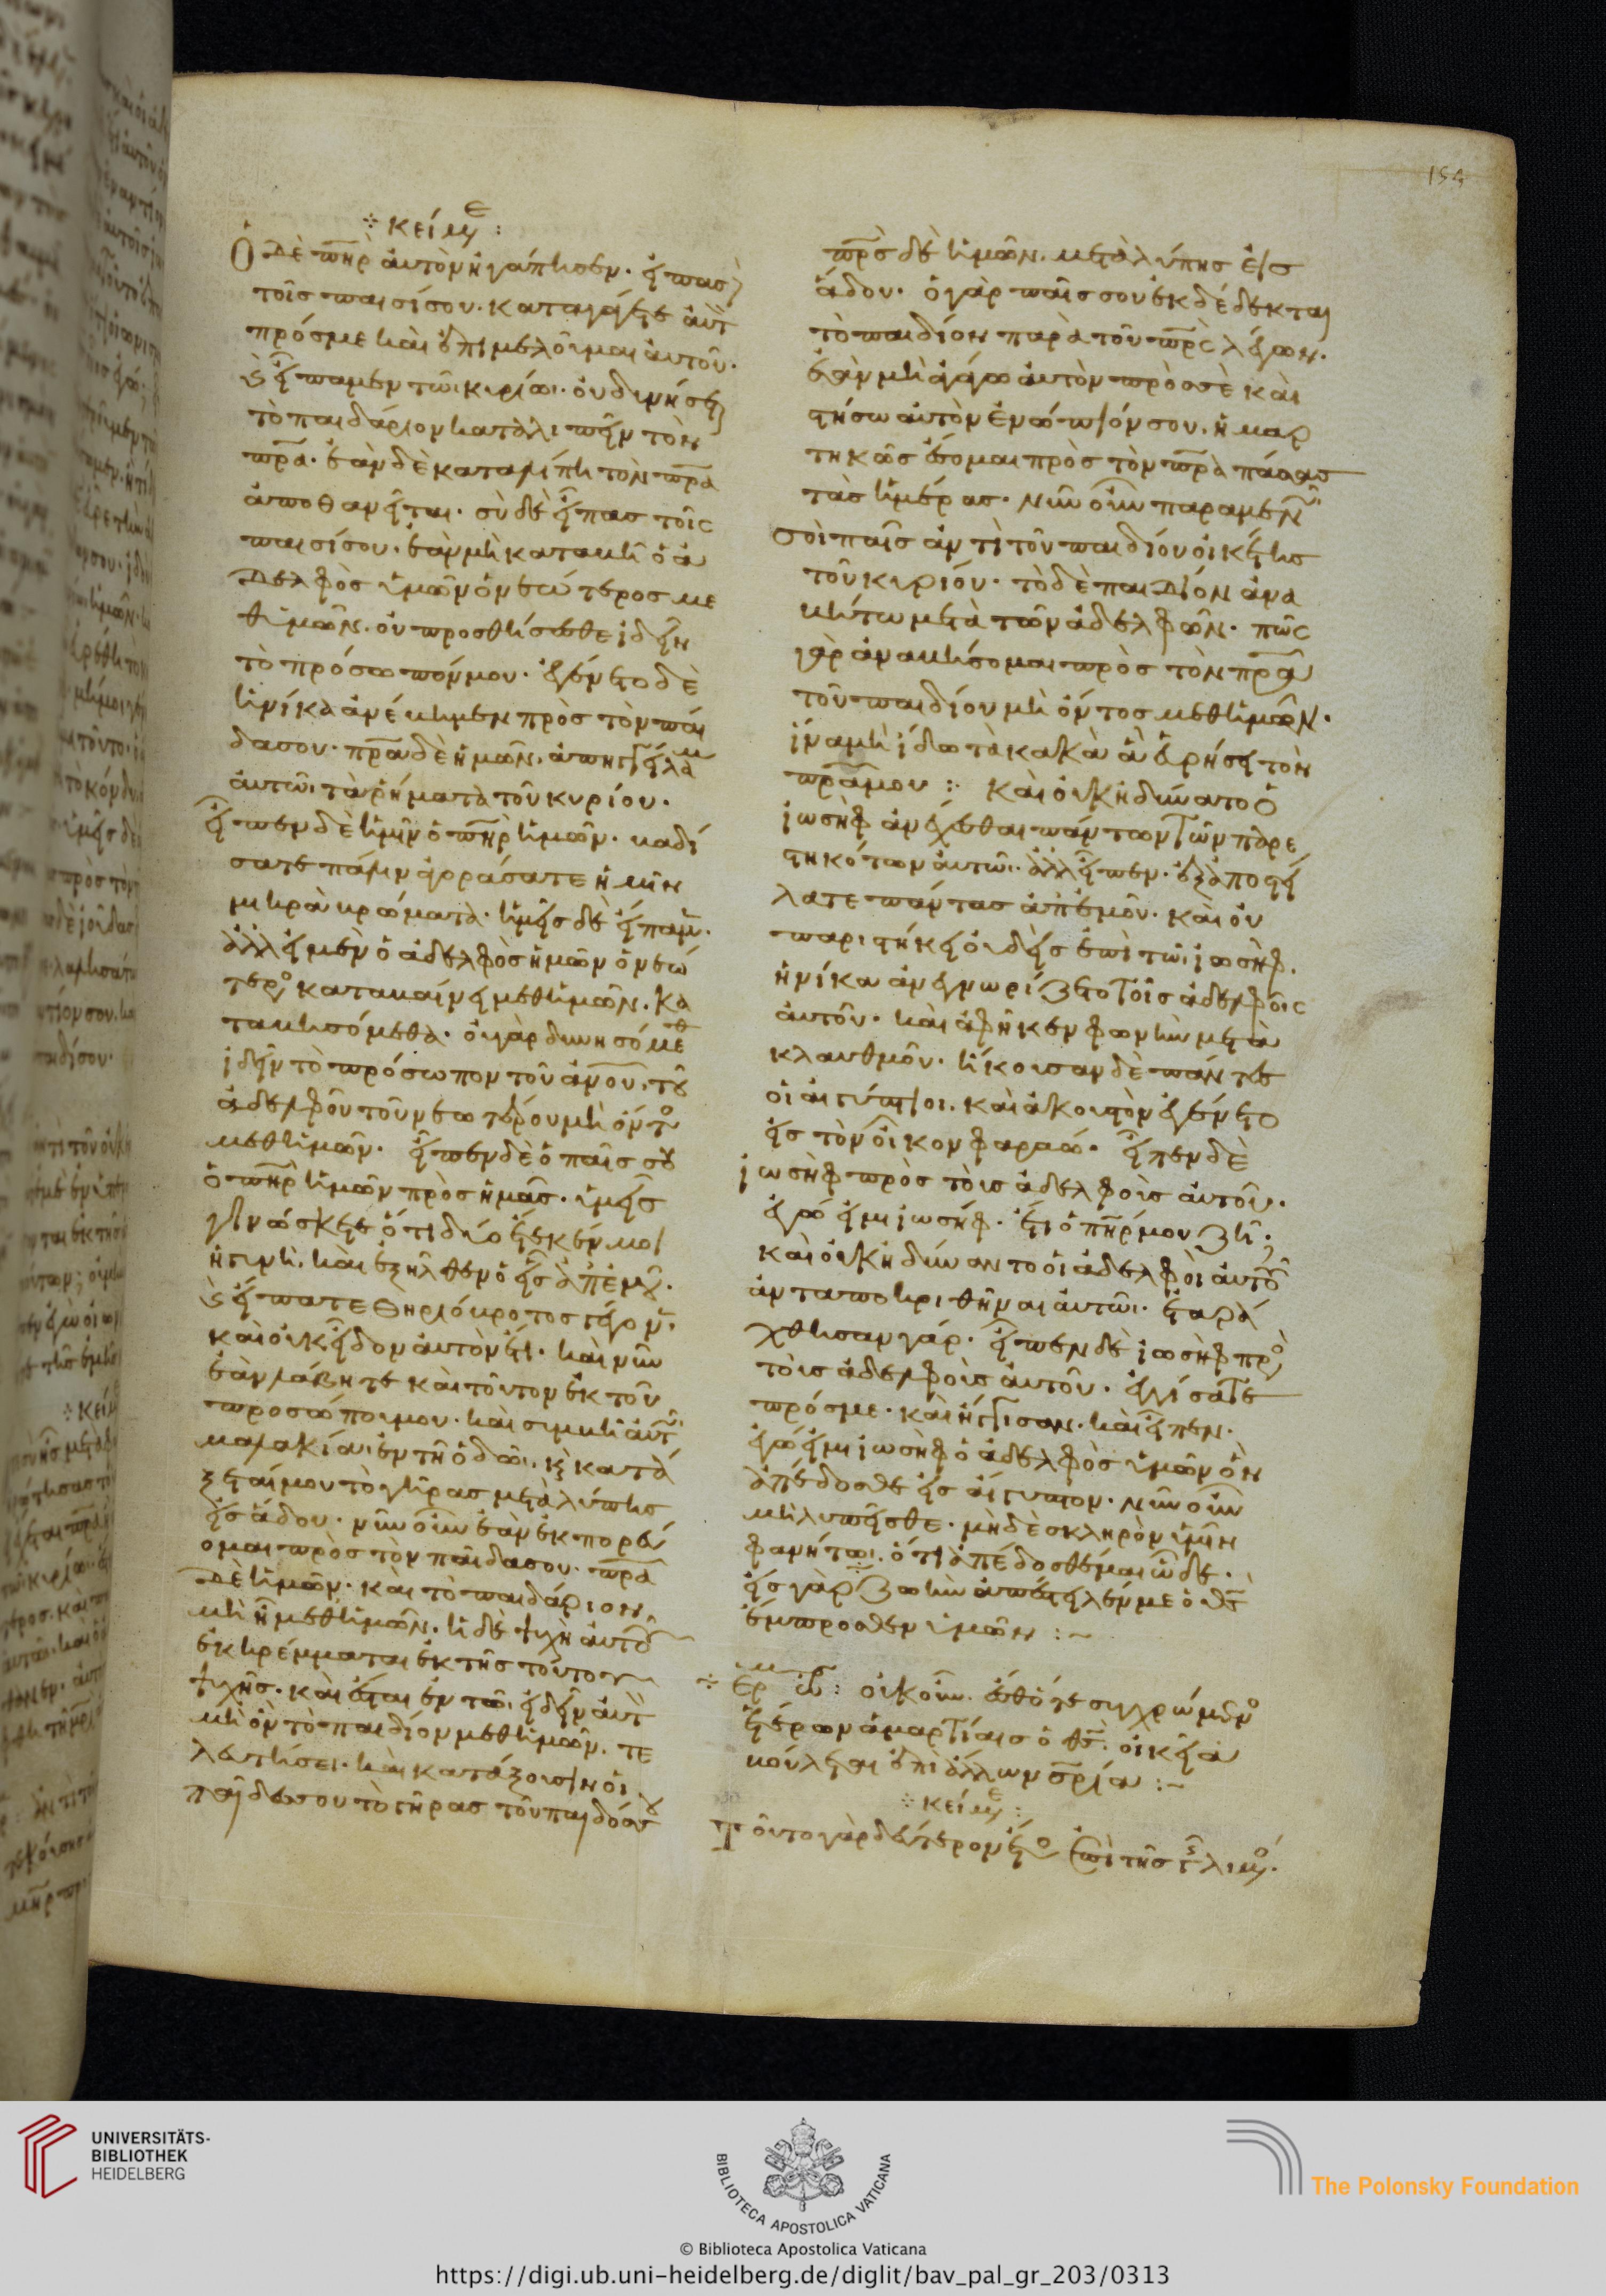 154
⁘ κείμε :
Ὁ δὲ π̅η̅ρ̅ ἀυτὸν ἠγάπησεν· εἶπασ
τοῖς παισί σου· καταγάγετε ἀυτ
πρόσ με καὶ ἐπιμελοῦμαι ἀυτοῦ·
ϗ εἴπαμεν τῶι κυρίωι· ὀυ δυνήσετ
τὸ παιδάριον καταλιπεῖν τὸν
π̅ρ̅α̅· ἐὰν δὲ καταλίπη τὸν π̅ρ̅α̅
ἀποθανεῖται· σὺ δὲ εἶπασ τοῖς
παισί σου· ἐὰν μὴ καταβῆ ὁ ἀ
δελφὸς ὑμῶν ὁ νεώτερος με
θ ὑμῶν· ὀυ προσθήσεσθε ἰδεῖν
τὸ πρόσωπόν μου· ἐγένετο δὲ
ἡνίκα ἀνέβημεν πρὸς τὸν παῖ
δα σου· π̅ρ̅α̅ δὲ ἡμῶν· ἀπηγγείλαμ
ἀυτῶι τὰ ῥήματα τοῦ κυρίου·
εἶπεν δὲ ἡμῖν ὁ π̅η̅ρ̅ ἡμῶν· βαδί
σατε πάλιν ἀγοράσατε ἡμῖν
μικρὰ βρώματα· ἡμεῖς δὲ εἴπαμ·
ἀλλ εἰ μὲν ὁ ἀδελφὸς ἡμῶν ὁ νεώ
τερο καταβαίνει μεθ ἡμῶν· κα
ταβησόμεθα· ὀυ γὰρ δυνησόμεθ
ἰδεῖν τὸ πρόσωπον τοῦ α̅ν̅ο̅υ̅· τοῦ
ἀδελφοῦ τοῦ νεωτέρου μὴ ὄντο
μεθ ἡμῶν· εἶπεν δὲ ὁ παῖς σου
ὁ π̅η̅ρ̅ ἡμῶν πρὸς ἡμᾶς· ὑμεῖς
γινώσκετε ὅτι δύο ἔτεκέν μοι
ἡ γυνή· καὶ ἐξῆλθεν ὁ εἷς ἀπ ἐμοῦ·
ϗ εἴπατε θηριόβροτος γέγον·
καὶ ὀυκ εἶδον ἀυτὸν ἔτι· καὶ νῦν
ἐὰν λάβητε καὶ τοῦτον ἐκ τοῦ
προσώπου μου· καὶ συμβῆ ἀυτ
μαλακία ἐν τῆ ὁδῶι· ϗ κατά
ξεταί μου τὸ γῆρας μετὰ λύπης
εἰς ἅδου· νῦν οὖν ἐὰν ἐκπορεύ
ομαι πρὸς τὸν παῖδα σου· π̅ρ̅α̅
δὲ ἡμῶν· καὶ τὸ παιδάριον
μὴ ἦ μεθ ἡμῶν· ἡ δὲ ψυχὴ ἀυτοῦ
ἐκκρέμμαται ἐκ τῆς τούτου
ψυχῆς· καὶ ἔσται ἐν τῶι ἰδεῖν ἀυτ
μὴ ὂν τὸ παιδίον μεθ ἡμῶν· τε
λευτήσει· καὶ κατάξουσιν οἱ
παῖδές σου τὸ γῆρας τοῦ παιδός σου
π̅ρ̅ς̅ δὲ ἡμῶν· μετὰ λύπης εἰσ
ἅδου· ὁ γὰρ παῖς σου ἐκδέδεκται
τὸ παιδίον παρὰ τοῦ π̅ρ̅ς̅ λέγων·
ἐὰν μὴ ἀγάγω ἀυτὸν πρὸς σὲ καὶ
στήσω ἀυτὸν ἐνώπιόν σου· ἡμαρ
τηκὼς ἔσομαι πρὸς τὸν π̅ρ̅α̅ πάσας
τὰς ἡμέρας· νῦν οὖν παραμενῶ
σοὶ παῖς ἀντὶ τοῦ παιδίου οἰκέτης
τοῦ κυρίου· τὸ δὲ παιδίον ἀνα
βήτω μετὰ τῶν ἀδελφῶν· πῶς
γὰρ ἀναβήσομαι πρὸς τὸν π̅ρ̅α̅
τοῦ παιδίου μὴ ὄντος μεθ ἡμῶν·
ἵνα μὴ ἴδω τὰ κακὰ ἃ ἑυρήσει τὸν
π̅ρ̅α̅ μου :· καὶ ὀυκ ἠδύνατο ὁ
ἰωσὴφ ἀνέχεσθαι πάντων τῶν παρε
στηκότων ἀυτῶι· ἀλλ εἶπεν· ἐξαποστεί
λατε πάντας ἀπ ἐμοῦ· καὶ ὀυ
παριστήκει ὀυδεὶς ἐπὶ τῶι ἰωσήφ·
ἡνίκα ἀνεγνωρίζετο τοῖς ἀδελφοῖς
ἀυτοῦ· καὶ ἀφῆκεν φωνὴν μετὰ
κλαυθμοῦ· ἤκουσαν δὲ πάντες
οἱ ἀιγύπτιοι· καὶ ἀκουστὸν ἐγένετο
εἰς τὸν οἶκον φαραώ· εἶπεν δὲ
ἰωσὴφ πρὸς τοὺς ἀδελφοὺς ἀυτοῦ·
ἐγώ εἰμι ἰωσήφ· ἔτι ὁ π̅η̅ρ̅ μου ζῆ;
καὶ ὀυκ ἠδύναντο οἱ ἀδελφοὶ ἀυτοῦ
ἀνταποκριθῆναι ἀυτῶι· ἐταρά
χθησαν γάρ· εἶπεν δὲ ἰωσὴφ προ
τοὺς ἀδελφοὺς ἀυτοῦ· ἐγγίσατε
πρός με· καὶ ἤγγισαν· καὶ εἶπεν·
ἐγώ εἰμι ἰωσὴφ ὁ ἀδελφὸς ὑμῶν ὃν
ἀπέδοσθε εἰς ἀίγυπτον· νῦν οὖν
μὴ λυπεῖσθε· μὴ δὲ σκληρὸν ὑμῖν
φανήτω· ὅτι ἀπέδοσθέ με ὧδε·
εἰς γὰρ ζωὴν ἀπέστειλέν με ὁ θ̅ς̅
ἔμπροσθεν ὑμῶν :~
⁘ ερμ : οὐκοῦν ἔσθ ὅτε συγχρώμενο
ἑτέρων ἁμαρτίαις ὁ θ̅ς̅· οἰκεῖα
βούλεται ἐπὶ ἄλλων σ̅ρ̅ία :~
⁘ κείμε :
Τοῦτο γὰρ δεύτερον ἔτο ἐπὶ τῆς γ λιμο·
UNIVERSITÄTS-
BIBLIOTHEK
HEIDELBERG
BIBLIOTECA APOSTOLICA VATICANA
The Polonsky Foundation
© Biblioteca Apostolica Vaticana
https://digi.ub.uni-heidelberg.de/diglit/bav_pal_gr_203/0313